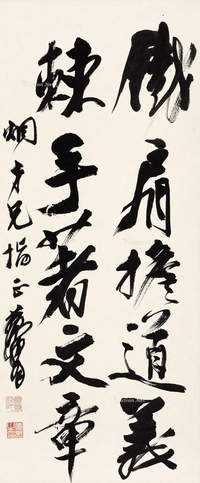 鐵肩擔道義
辣手著文章
炯才兄指正